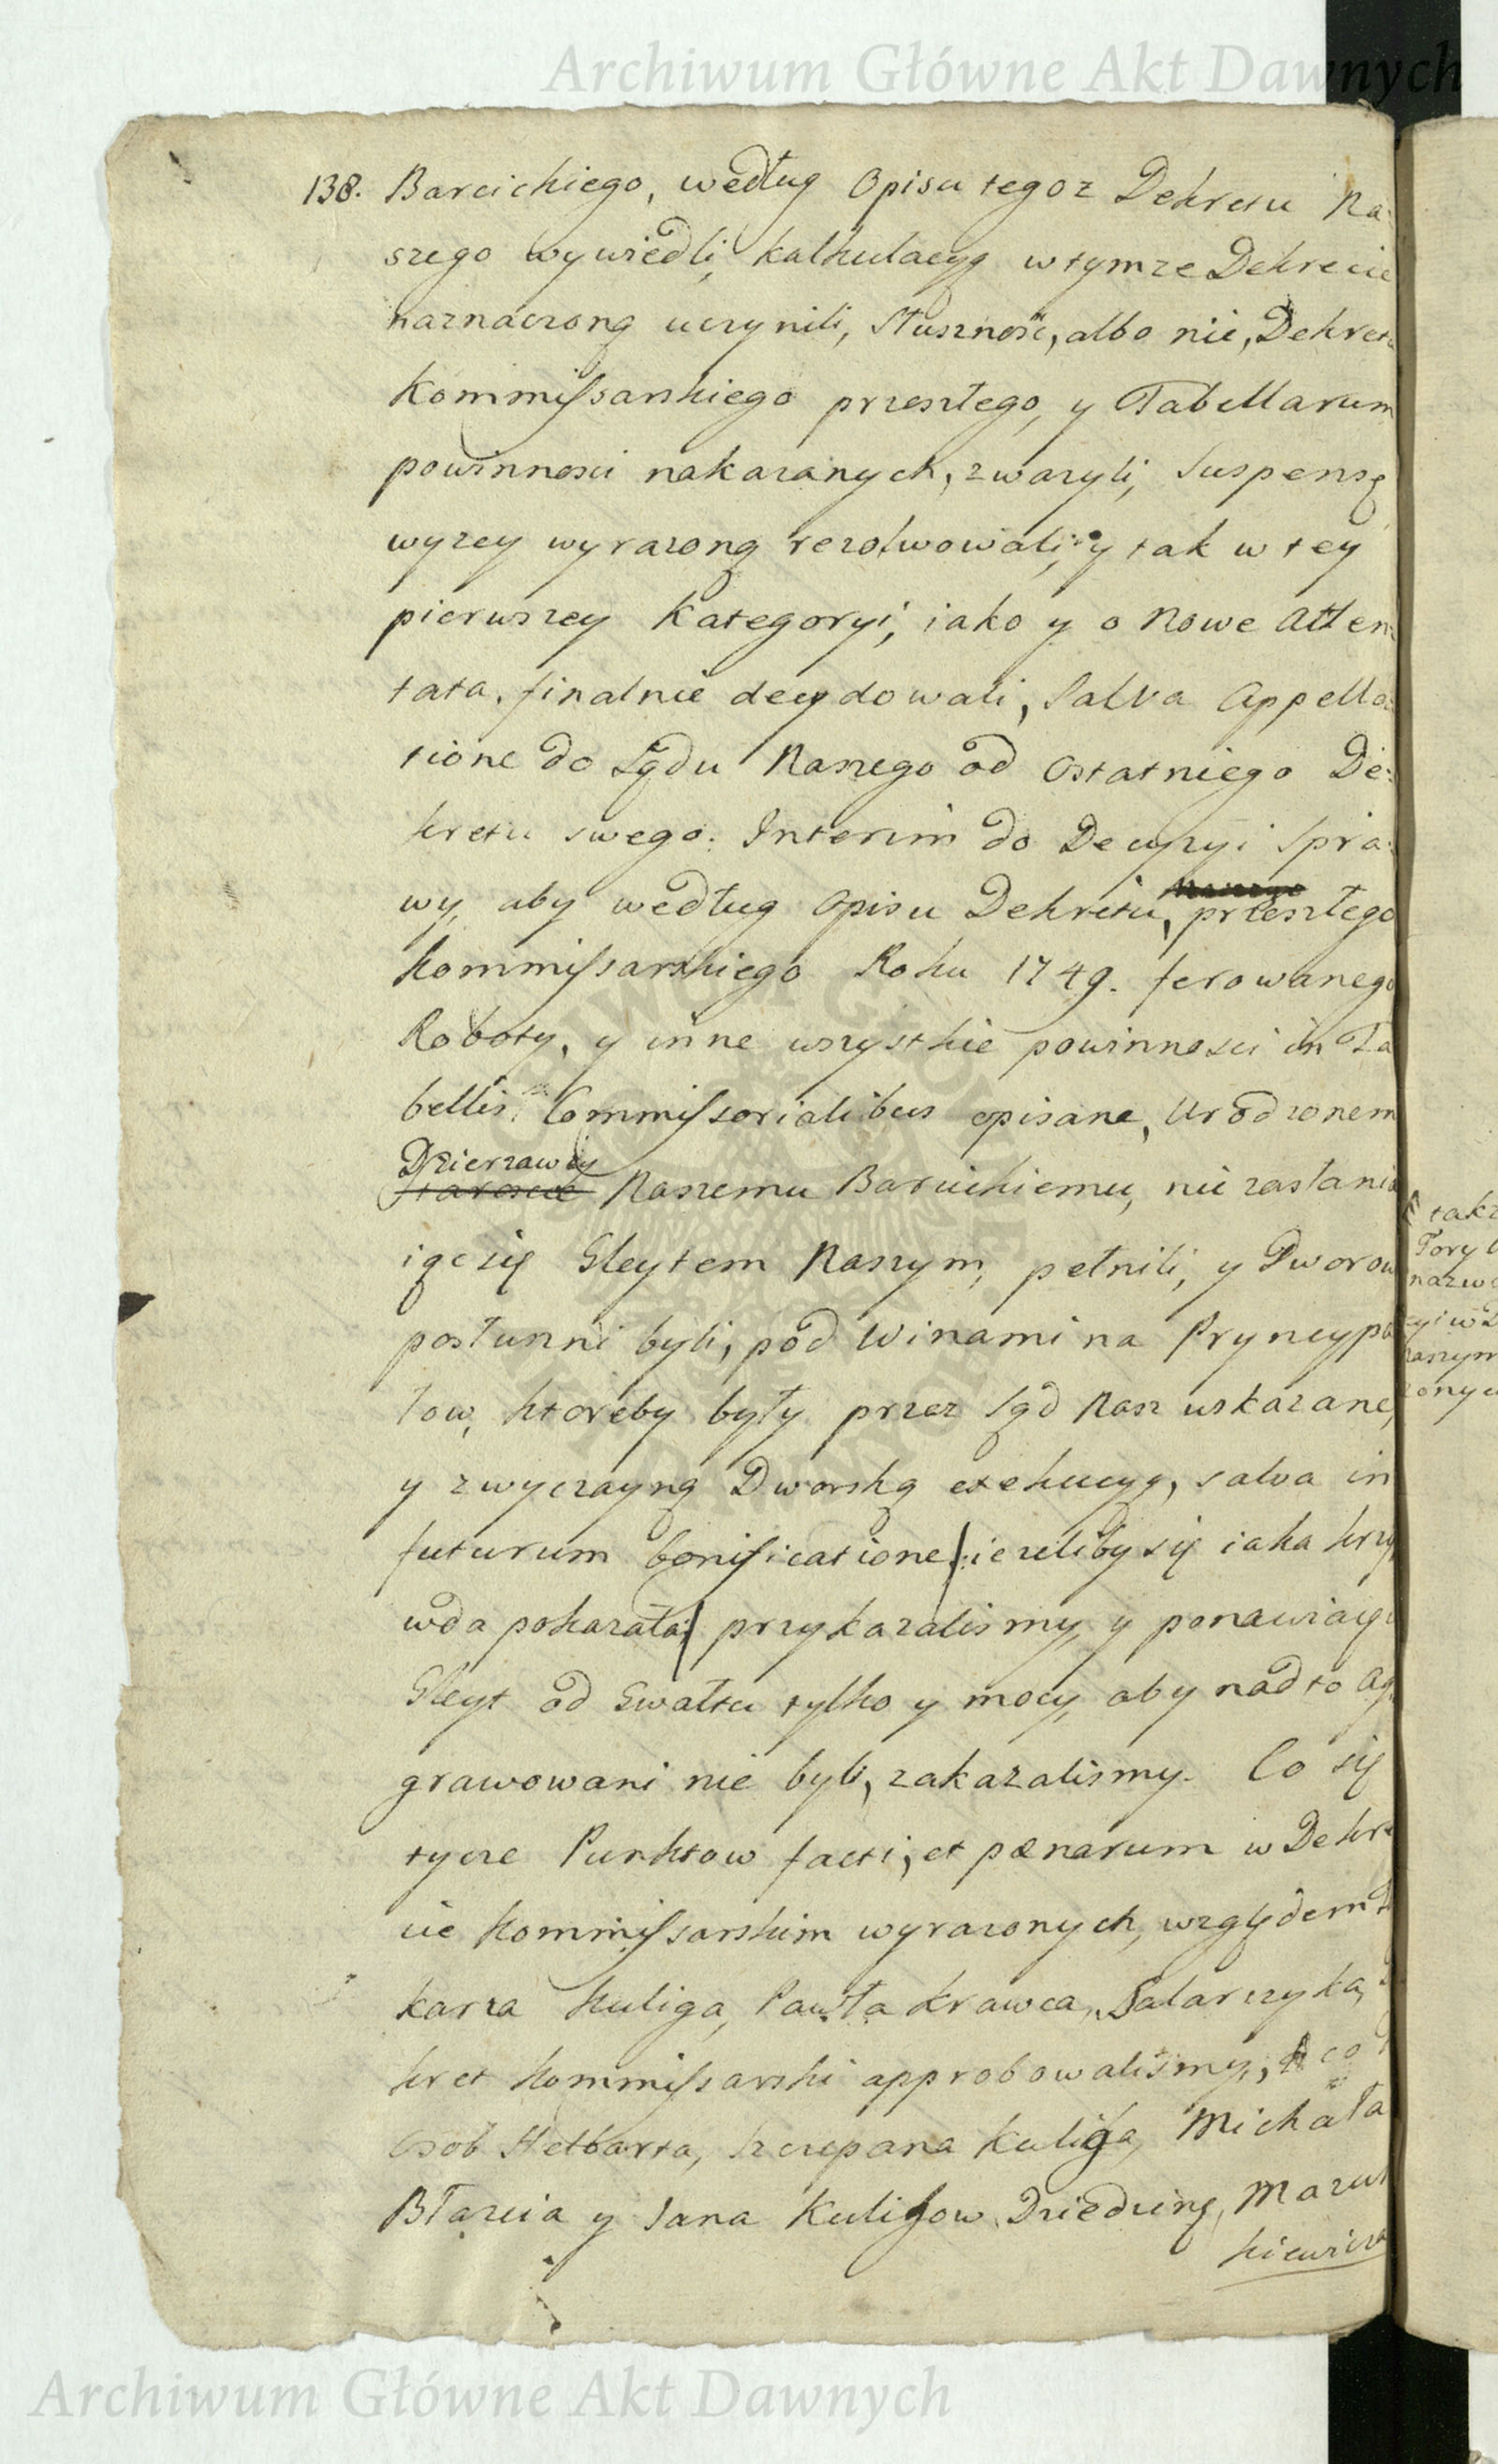 Archiwum Główne Akt Dawnych
138. Barcickiego, według Opisu tegoz Dekretu Na:
szego wywiedli, kalkulacyą w tymze Dekrecie
naznaczoną uczynili, Słusznosć, albo nie, Dekretu
Kommissarskiego przeszłego, y Tabellarum
powinnosci nakazanych, zwazyli, Suspensę
wyzey wyrazoną rezolwowali, y tak w tey
pierwszey Kategoryi, iako y o nowe Atten
tata, finalnie decydowali, Salva Appella:
tione do Sądu Naszego od Ostatniego De:
kretu swego. Interim do Decyzyi Spra:
wy, aby według Opisu Dekretu, przeszłego
Kommissarskiego Roku 1749. ferowanego
Roboty, y inne wszystkie powinnosci in Ta
bellis Commissorialibus opisane, Urodzonem
Dzierzawcy
Staroscie Naszemu Barcickiemu, nie zasłania
iąc się Gleytem Naszym, pełnili, y Dworow
posłuszni byli, pod Winami na Pryncypa
łow, ktoreby były przez Sąd Nasz wskazane,
y zwyczayną Dworską exekucyą, salva in
futurum bonificatione /: iezeliby się iaka krzy
wda pokazała :/ przykazalismy, y ponawiaiąc
Gleyt od Gwałtu tylko y mocy, aby nadto Ag
grawowani nie byli, zakazalismy. Co się
tycze Punktow facti, et pænarum w Dekre
cie Kommissarskim wyrazonych, względem
karza Kuliga, Pawła Krawca, Salarczyka,
kret Kommissarski approbowalismy, A co
Osob Helbarta, Szczepana Kuliga, Michała
Błazcia y Jana Kuligow, Dziedzinę, Mazur
kiewicza
takz
Tory
nazw
Archiwum Główne Akt Dawnych